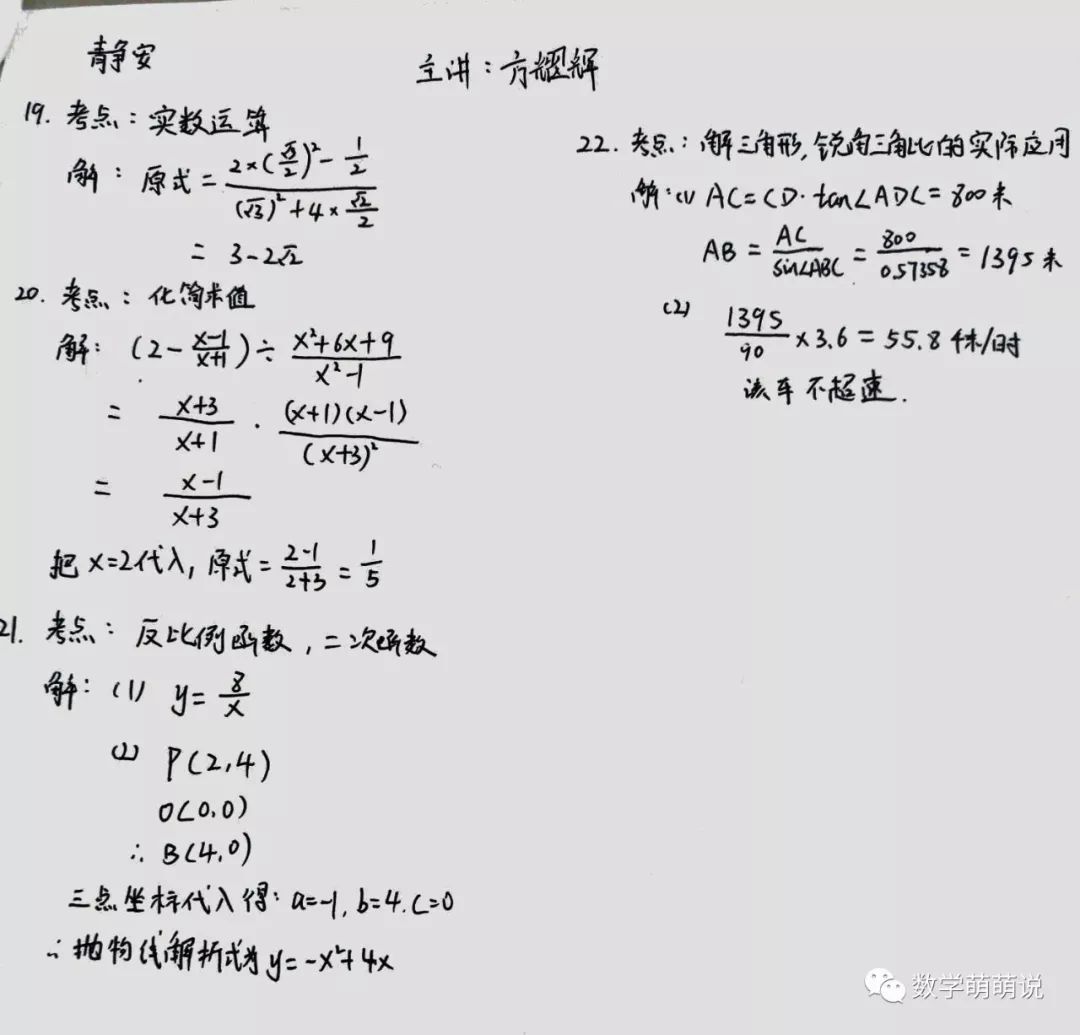 静安
主讲：方耀辉
19. 考点：实数运算
解：原式 = (2×(√3/2)² - 1/2) / ((√3)² + 4×√2/2)
= 3-2√2
20. 考点：化简求值
解：(2 - (x-1)/(x+1)) ÷ (x²+6x+9)/(x²-1)
= (x+3)/(x+1) · ((x+1)(x-1))/((x+3)²)
= (x-1)/(x+3)
把 x=2代入, 原式 = (2-1)/(2+3) = 1/5
21. 考点：反比例函数, 二次函数
解：(1) y = 8/x
(2) P(2,4)
O(0,0)
∴ B(4,0)
三点坐标代入得：a=-1, b=4. c=0
∴ 抛物线解析式为 y=-x²+4x
22. 考点：解三角形, 锐角三角比的实际应用
解：(1) AC = CD·tan∠ADC = 800米
AB = AC/sin∠ABC = 800/0.57358 = 1395米
(2) 1395/90 × 3.6 = 55.8 千米/时
该车不超速.
数学萌萌说